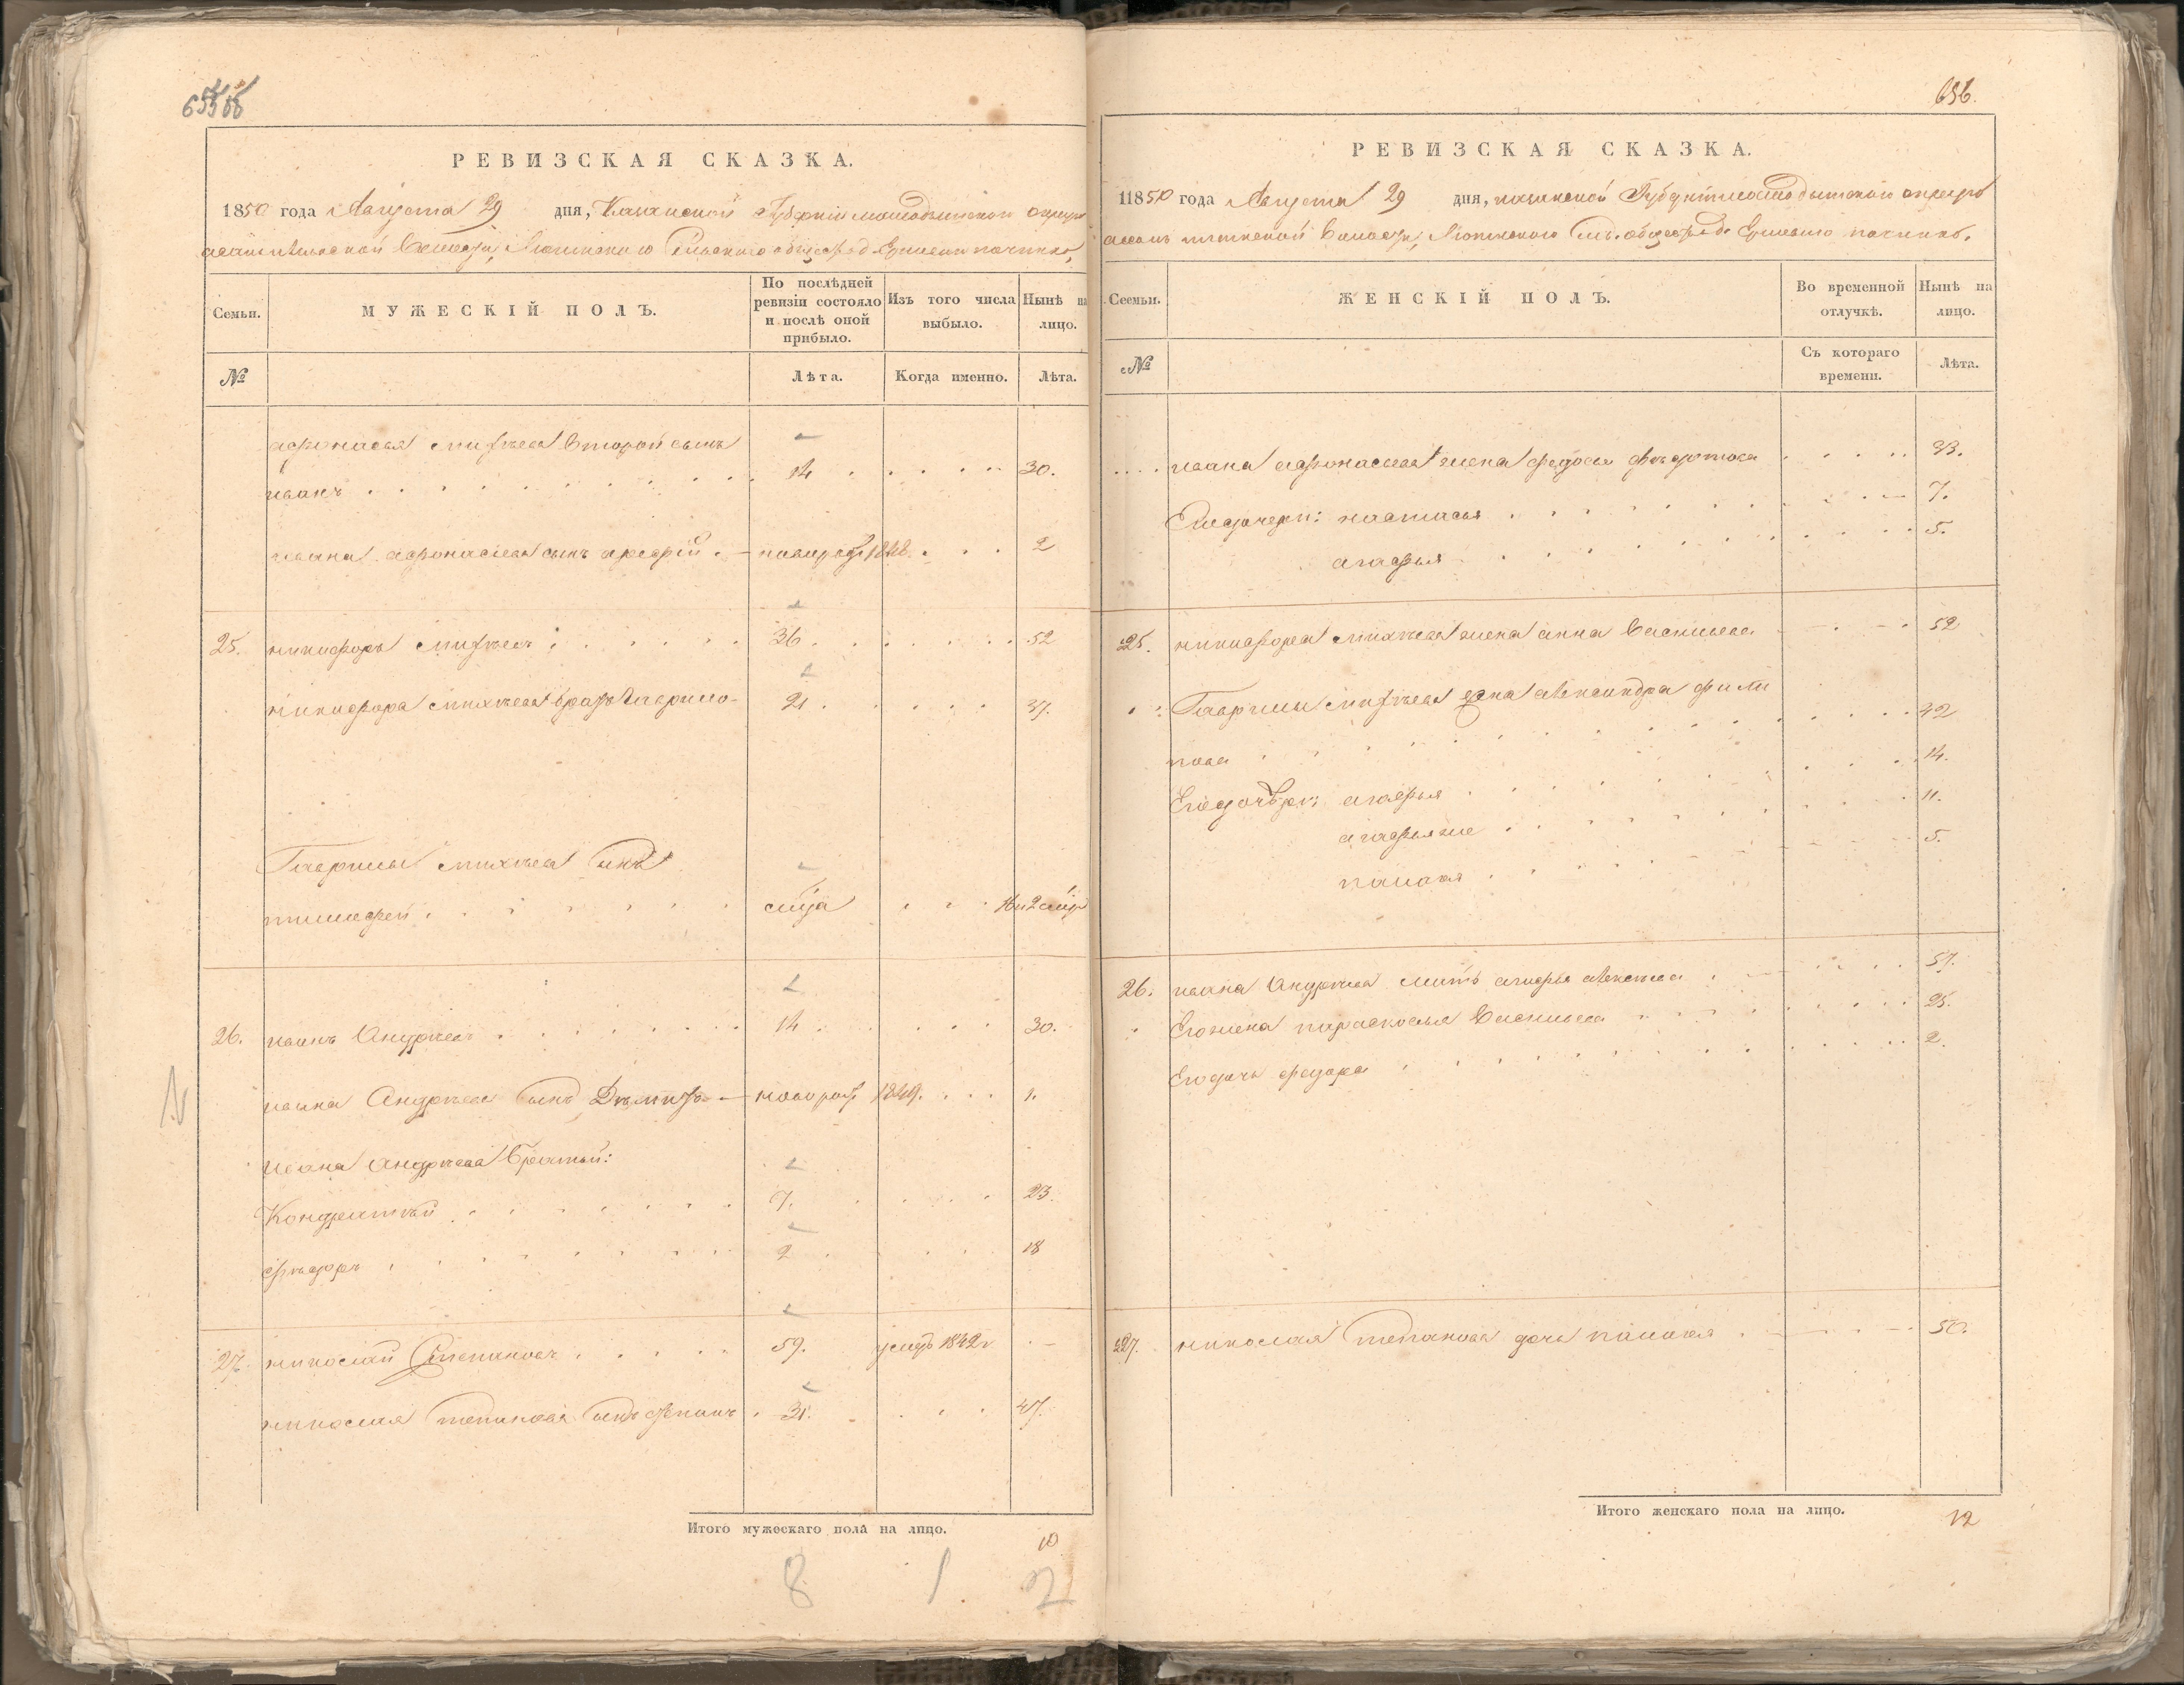 656.
РЕВИЗСКАЯ СКАЗКА.
1850 года Августа 29 дня, Казанской Губерніи
волости,
Семьи.
МУЖЕСКІЙ ПОЛЪ.
По послѣдней ревизіи состояло и послѣ оной прибыло.
Изъ того числа выбыло.
Нынѣ на лицо.
№
Лѣта.
Когда именно.
Лѣта.
афонасья михѣева второй сынъ
иванъ 14 30.
ивана афонасіева сынъ новорож 1848. 2
25. никифоръ михѣевъ 36 52
никифора михѣева братъ гаврило 21 37.
Гаврилы михѣева сынъ
тимофей 16
26. иванъ Андрѣевъ 14 30.
ивана Андрѣева сынъ новорож 1849. 1.
ивана андрѣева братьи:
Кондратѣй 7. 23.
фѣдоръ 2 18
27. николай Степановъ 59. умеръ 1842
николая степанова сынъ степанъ 31. 47.
Итого мужескаго пола на лицо. 10
8 1 2
656.
РЕВИЗСКАЯ СКАЗКА.
11850 года Августа 29 дня, казанской Губерніи
волости,
Сеемьи.
ЖЕНСКІЙ ПОЛЪ.
Во временной отлучкѣ.
Нынѣ на лицо.
№
Съ котораго времени.
Лѣта.
ивана афонасьева жена федосья 33.
Его дочери: настасья 7.
агафья 5.
25. никифора михѣева жена анна Васильева 52
Гаврилы михѣева жена александра фили
пова 42
Его дочѣри: агафья 14.
агафья же 11.
палагея 5.
26. ивана Андрѣева мать 57.
Его жена парасковья Васильева 25.
Его дочь федора 2.
227. николая степанова дочь палагея 50.
Итого женскаго пола на лицо. 12